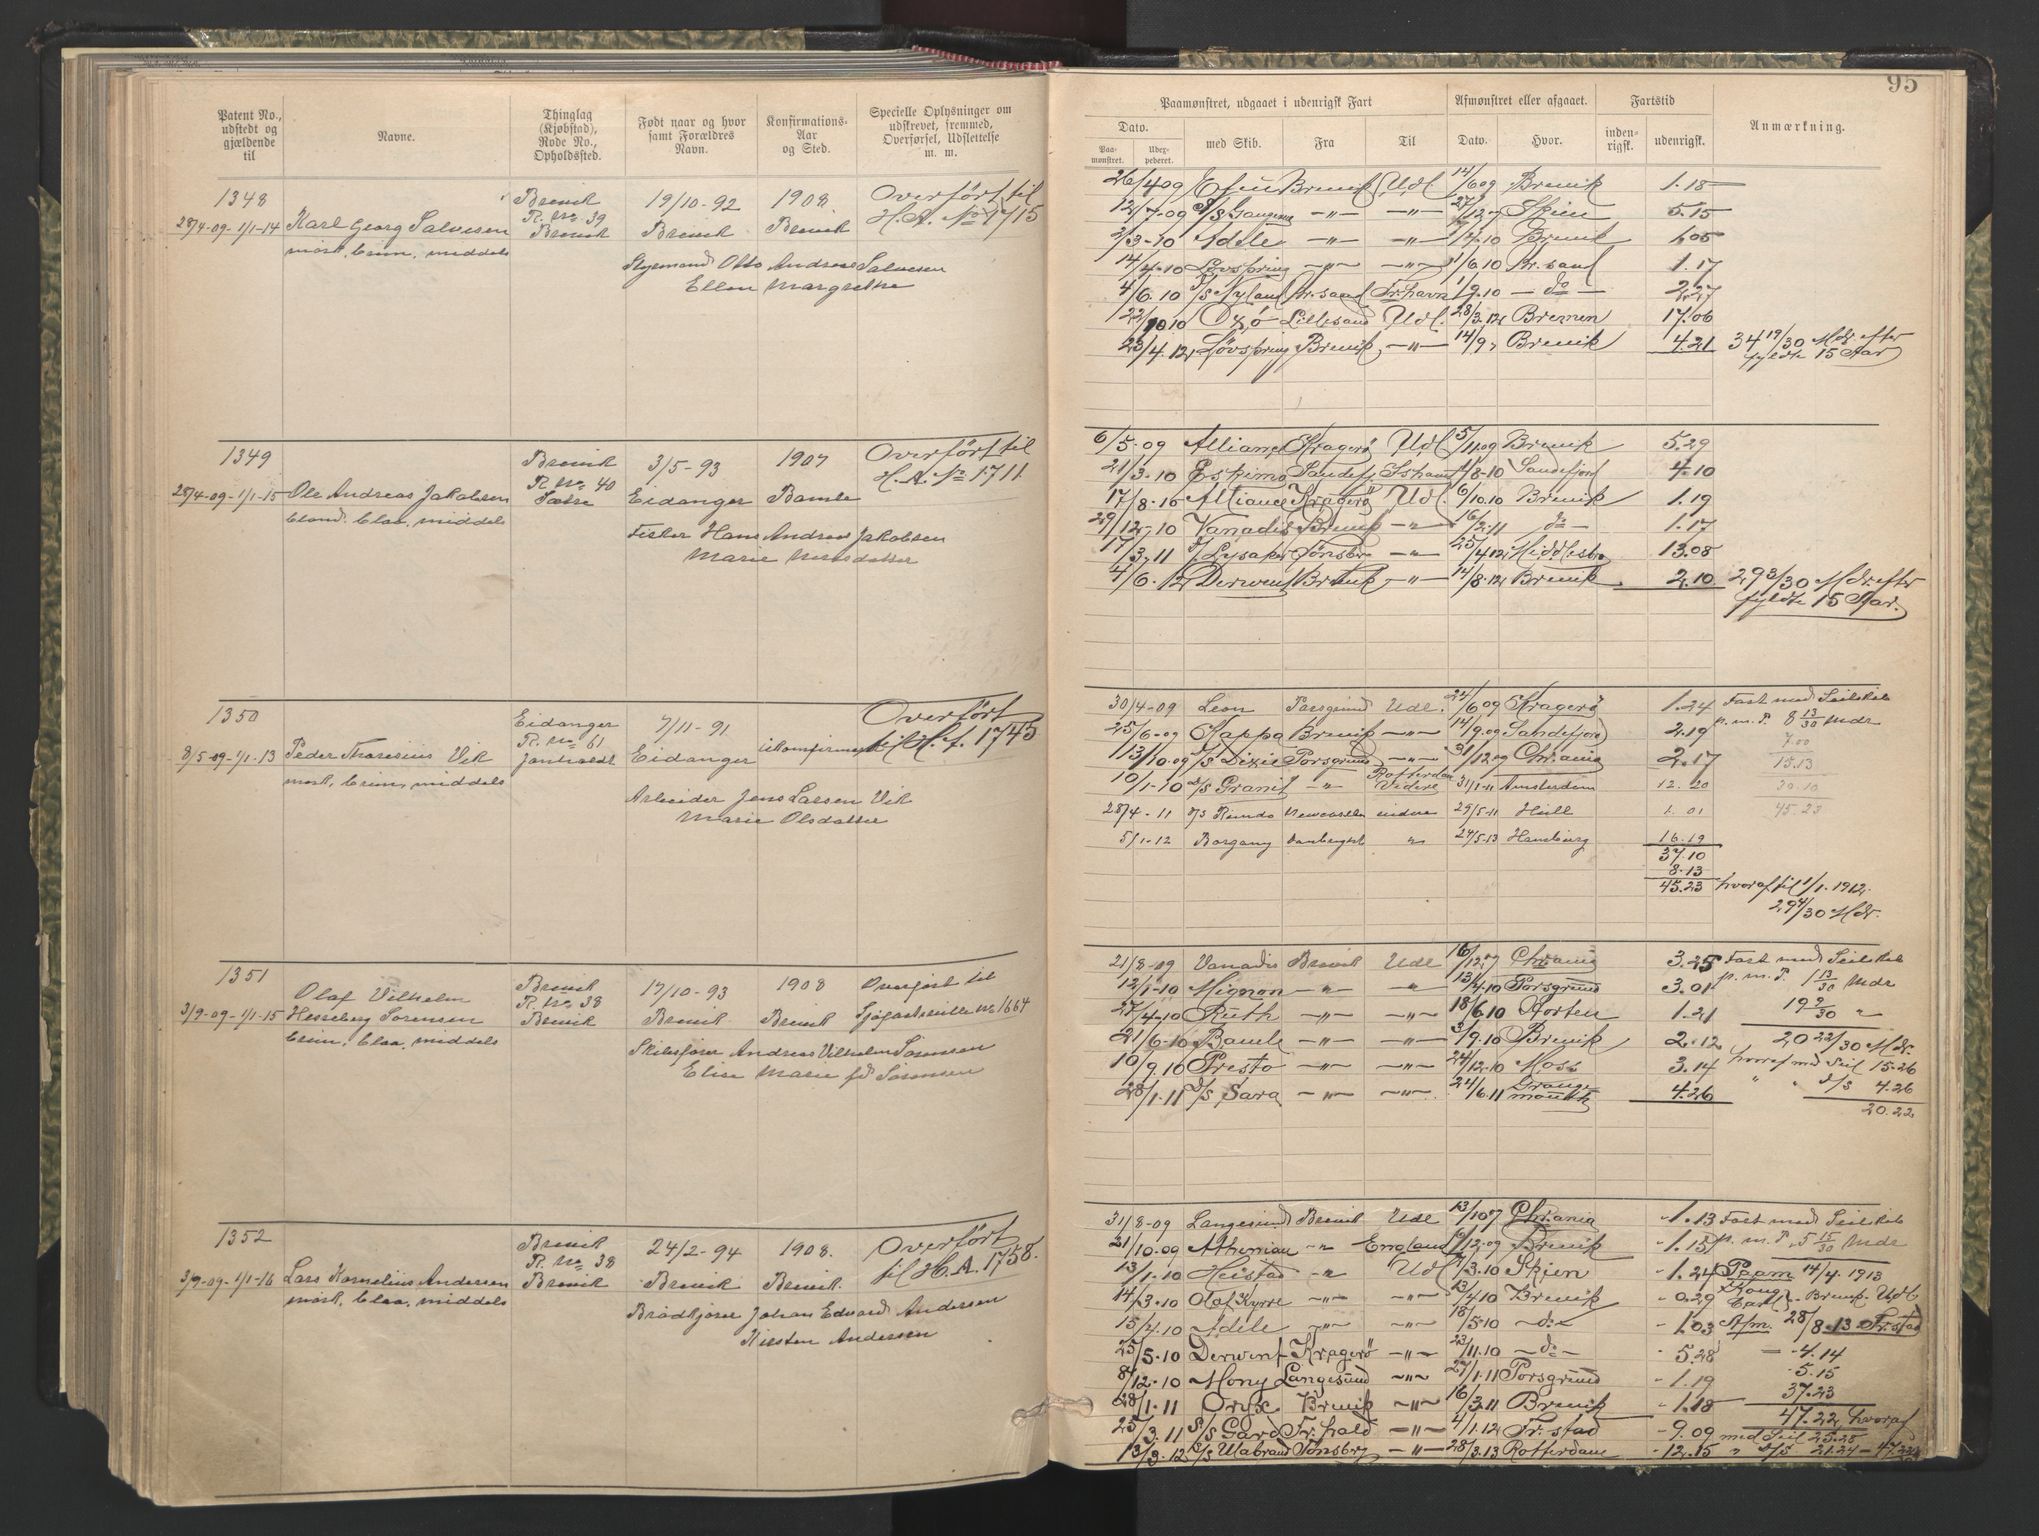 Patent No., udstedt og gjældende til
Navne.
Thinglag (Kjøbstad), Rode No., Opholdssted.
Født naar og hvor samt Forældres Navn.
Konfirmations-Aar og Sted.
Specielle Oplysninger om udskrevet, fremmed, Overførsel, Udslettelse m. m.
1348
28/4-09-1/1-14
Karl Georg Salvesen
mørk, brun, middels
Brevik
R. No 39
Brevik
19/10-92
Brevik
1908
Brevik
Overført til
H. A. No 1715
Styrmand Otto Andreas Salvesen
Ellen Margrethe
1349
28/4-09-1/1-15
Ole Andreas Jakobsen
blond, blaa, middels
Brevik
R. No 40
3/5-93
Eidanger
1907
Bamle
Overført til
H. A. No 1711
Fisker Hans Andreas Jakobsen
Marie
1350
8/5-09-1/1-13
Peder Thoresius Vik
mørk, brun, middels
Eidanger
R. No 61
7/11-91
Eidanger
ukonfirmeret
Overført
til H. A. 1745
Arbeider Jens Larsen Vik
Marie Olsdatter
1351
3/9-09-1/1-15
Olaf Vilhelm
Hesseberg Sørensen
brun, blaa, middels
Brevik
R. No 38
Brevik
17/10-93
Brevik
1908
Brevik
Overført til
Sjøfartsrulle No 1664
Skibsfører Andreas Vilhelm Sørensen
Elise Marie fd Sørensen
1352
3/9-09-1/1-16
Lars Kornelius Andersen
mørk, blaa, middels
Brevik
R. No 38
Brevik
24/2-94
Brevik
1908.
Brevik
Overført
til H. A. 1758.
Brødkjører Johan Edvard Andersen
Kirsten Andersen
95
Paamønstret, udgaaet i udenrigsk Fart
Afmønstret eller afgaaet.
Fartstid
Anmærkning.
Dato.
Paa-mønstret.
Udex-pederet.
med Skib.
Fra
Til
Dato.
Hvor.
inden-rigsk.
udenrigsk.
26/4 09 Brevik Udl 14/6 09 Brevik 1.18
12/7-09 Skien 5.15
2/3-10 Adele -"- -"- Brevik 1.05
14/4-10 Løvspring -"- -"- 1/6.10 Kr.sand 1.17
4/6.10 S/s Nyland Kr.sand Fr.havn 1/9.10 - do - 2.27
22/10 10 Oxø Lillesand Udl. 28/3.12 Bremen 17.06
23/4.12 Løvspring Brevik -"- 14/9 " Brevik 4.21 34 19/30 Mdr. efter
fyldte 15 Aar
6/5-09 Alliance Kragerø Udl 5/11 09 Brevik 5.29
21/3-10 Eskimo Sandefj Ishavet /8-10 Sandefjord 4.10
17/8-10 Alliance Kragerø Udl. 6/10.10 Brevik 1.19
29/12-10 Vanadis Brevik -"- 16/2.11 do - 1.17
17/3.11 S/s Lysaker Tønsbrg -"- 25/4 12 Middlesbro 13.08
4/6.12 Derwent Brevik -"- 14/8.12 Brevik 2.10 29 3/30 Mdr. efter
fyldte 15 Aar.
30/4-09 Leon Porsgrund Udl. 24/6 09 Kragerø 1.24 Fart med Seilskib
25/6-09 Kappa Brevik -"- 14/9.09 Sandefjord 2.19 p. m. P. 8 13/30 Mdr
7.00
13/10.09 S/s Dixie Porsgrund -"- 31/12.09 Chr.ania 2.17
15.13
10/1-10 D/s Granit -"- Rotterdam Videre 31/1-11 Amsterdam 12.20
30.10
28/4-11 S/s Newcastle videre 29/5-11 Hull 1.01
45.23
5/1-12 Borgany " 24/5-13 Hamburg 16.19
37.10
8.13
45.23 hvoraf til 1/1.1912.
29 4/30 Mdr.
21/8-09 Vanadis Brevik Udl 16/12.09 Chr.ania 3.25 Fart med Seilskib
12/1-10 Mignon -"- " 13/4.10 Porsgrund 3.01 p. m. P. 1 13/30 Mdr
27/4-10 Ruth -"- -"- 18/6.10 Horten 1.21 19 9/30 "
21/6-10 Bamle -"- -"- 3/9.10 Brevik 2.12 20 22/30 Mdr.
10/9.10 Presto -"- -"- 24/12.10 Moss 3.14 hvoraf med Seil 15.26
28/1.11 D/s Sara -"- -"- 24/6.11 Grangemouth 4.26 " " D/S 4.26
20.22
31/8-09 Langesund Brevik Udl 13/10 Chr.ania 1.13 Fart med Seilskib
21/10.09 Athenian -"- England 6/12-09 Brevik 1.15 p. m. P. 5 15/30 Mdr
13/1-10 Heistad -"- Udl 7/3.10 Skien 1.24 Paam 14/4.1913
14/3-10 Olaf Kyrre -"- -"- 13/4.10 Brevik 0.29 Kong Carl - Brevik - Udl
15/4.10 Adele -"- -"- 18/5-10 - do - 1.03 Afm. 28/8.13 Fr.stad
25/5-10 Derwent Kragerø -"- 23/11.10 - do - 5.28 - 4.14
8/12-10 Mony Langesund -"- 27/1.11 Porsgrund 1.19 5.15
28/1.11 Oryx Brevik -"- 16/3.11 Brevik 1.18 37.23
25/3.11 S/s Gard Fr.hald -"- 4/1.12 Fr.stad 9.09 47.22 hvoraf
13/3.12 S/s Ulabrand Tønsbrg -"- 28/3.13 Rotterdam 12.15 med Seil 25.28
" D/S 21.24 - 47.22